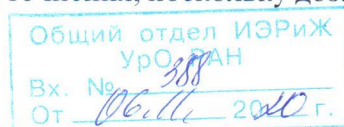 Общий отдел ИЭРиЖ
УрО РАН
Вх. № 388
От 06.11. 2020 г.